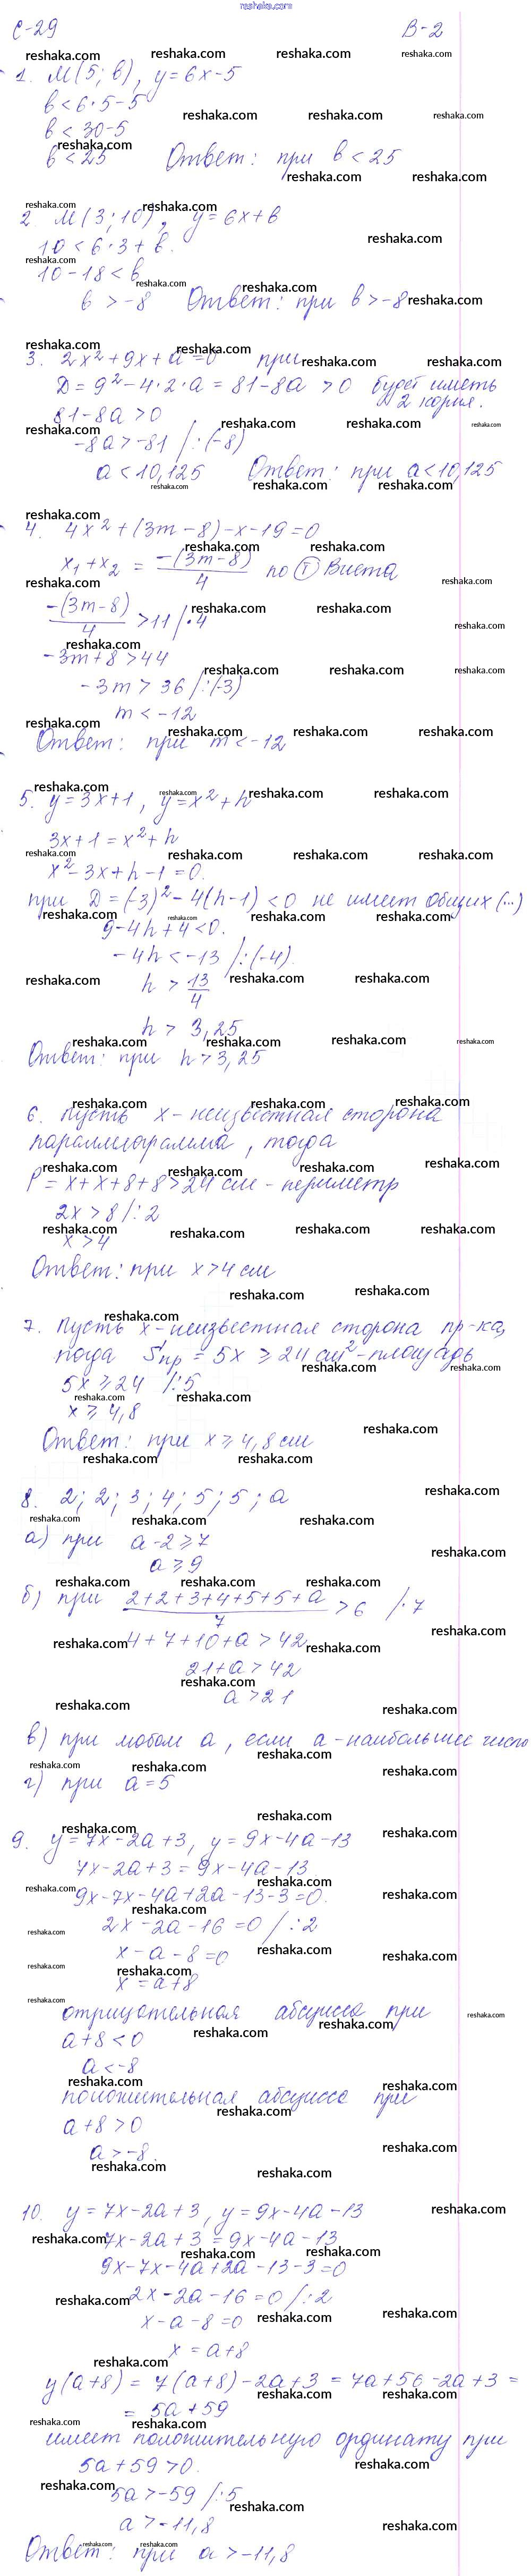 reshaka.com
С-29 В-2
1. М(5; в), y=6x-5
в<6·5-5
в<30-5
в<25 Ответ: при в<25
2. М(3;10), y=6x+в
10<6·3+в.
10-18<в
в>-8 Ответ: при в>-8
3. 2x²+9x+a=0 при
D=9²-4·2·a=81-8a>0 будет иметь
2 корня.
81-8a>0
-8a>-81 /:(-8)
a<10,125 Ответ: при a<10,125
4. 4x²+(3m-8)-x-19=0
x₁+x₂ = -(3m-8)/4 по Т Виета
-(3m-8)/4 >11 /·4
-3m+8>44
-3m>36 /:(-3)
m<-12
Ответ: при m<-12
5. y=3x+1, y=x²+h
3x+1=x²+h
x²-3x+h-1=0.
при D=(-3)²-4(h-1)<0 не имеет общих (...)
9-4h+4<0.
-4h<-13 /:(-4).
h > 13/4
h > 3,25
Ответ: при h>3,25
6. Пусть x-неизвестная сторона
параллелограмма, тогда
P=x+x+8+8>24 см-периметр
2x>8 /:2
x>4
Ответ: при x>4 см
7. Пусть x-неизвестная сторона пр-ка,
тогда Sпр=5x⩾24 см²-площадь
5x⩾24 /:5
x⩾4,8
Ответ: при x⩾4,8 см
8. 2; 2; 3; 4; 5; 5; a
а) при a-2⩾7
a⩾9
б) при (2+2+3+4+5+5+a)/7 >6 /·7
4+7+10+a>42
21+a>42
a>21
в) при любом a, если a-наибольшее число
г) при a=5
9. y=7x-2a+3, y=9x-4a-13
7x-2a+3=9x-4a-13.
9x-7x-4a+2a-13-3=0.
2x-2a-16=0 /:2
x-a-8=0
x=a+8
отрицательная абсцисса при
a+8<0
a<-8
положительная абсцисса при
a+8>0
a>-8.
10. y=7x-2a+3, y=9x-4a-13
7x-2a+3=9x-4a-13
9x-7x-4a+2a-13-3=0
2x-2a-16=0 /:2
x-a-8=0
x=a+8
y(a+8)=7(a+8)-2a+3=7a+56-2a+3=
=5a+59
имеет положительную ординату при
5a+59>0.
5a>-59 /:5
a>-11,8
Ответ: при a>-11,8